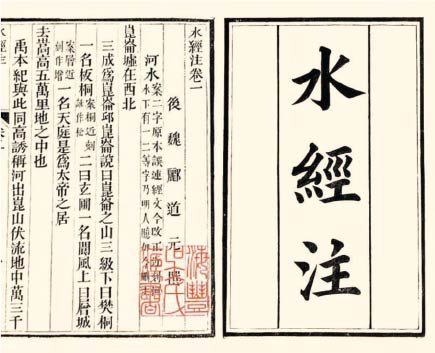 水經注
水經注卷一
後魏酈道元撰
河水案二字原本誤連經文今改正近刻河
水下有一二等字乃明人臆加今刪
崑崙墟在西北
三成爲崑崙邱崑崙說曰崑崙之山三級下曰樊桐
一名板桐案桐近刻訛作松二曰玄圃一名閬風上曰層城
案層近刻作增一名天庭是爲太帝之居
去嵩高五萬里地之中也
禹本紀與此同高誘稱河出崑山伏流地中萬三千
水經注